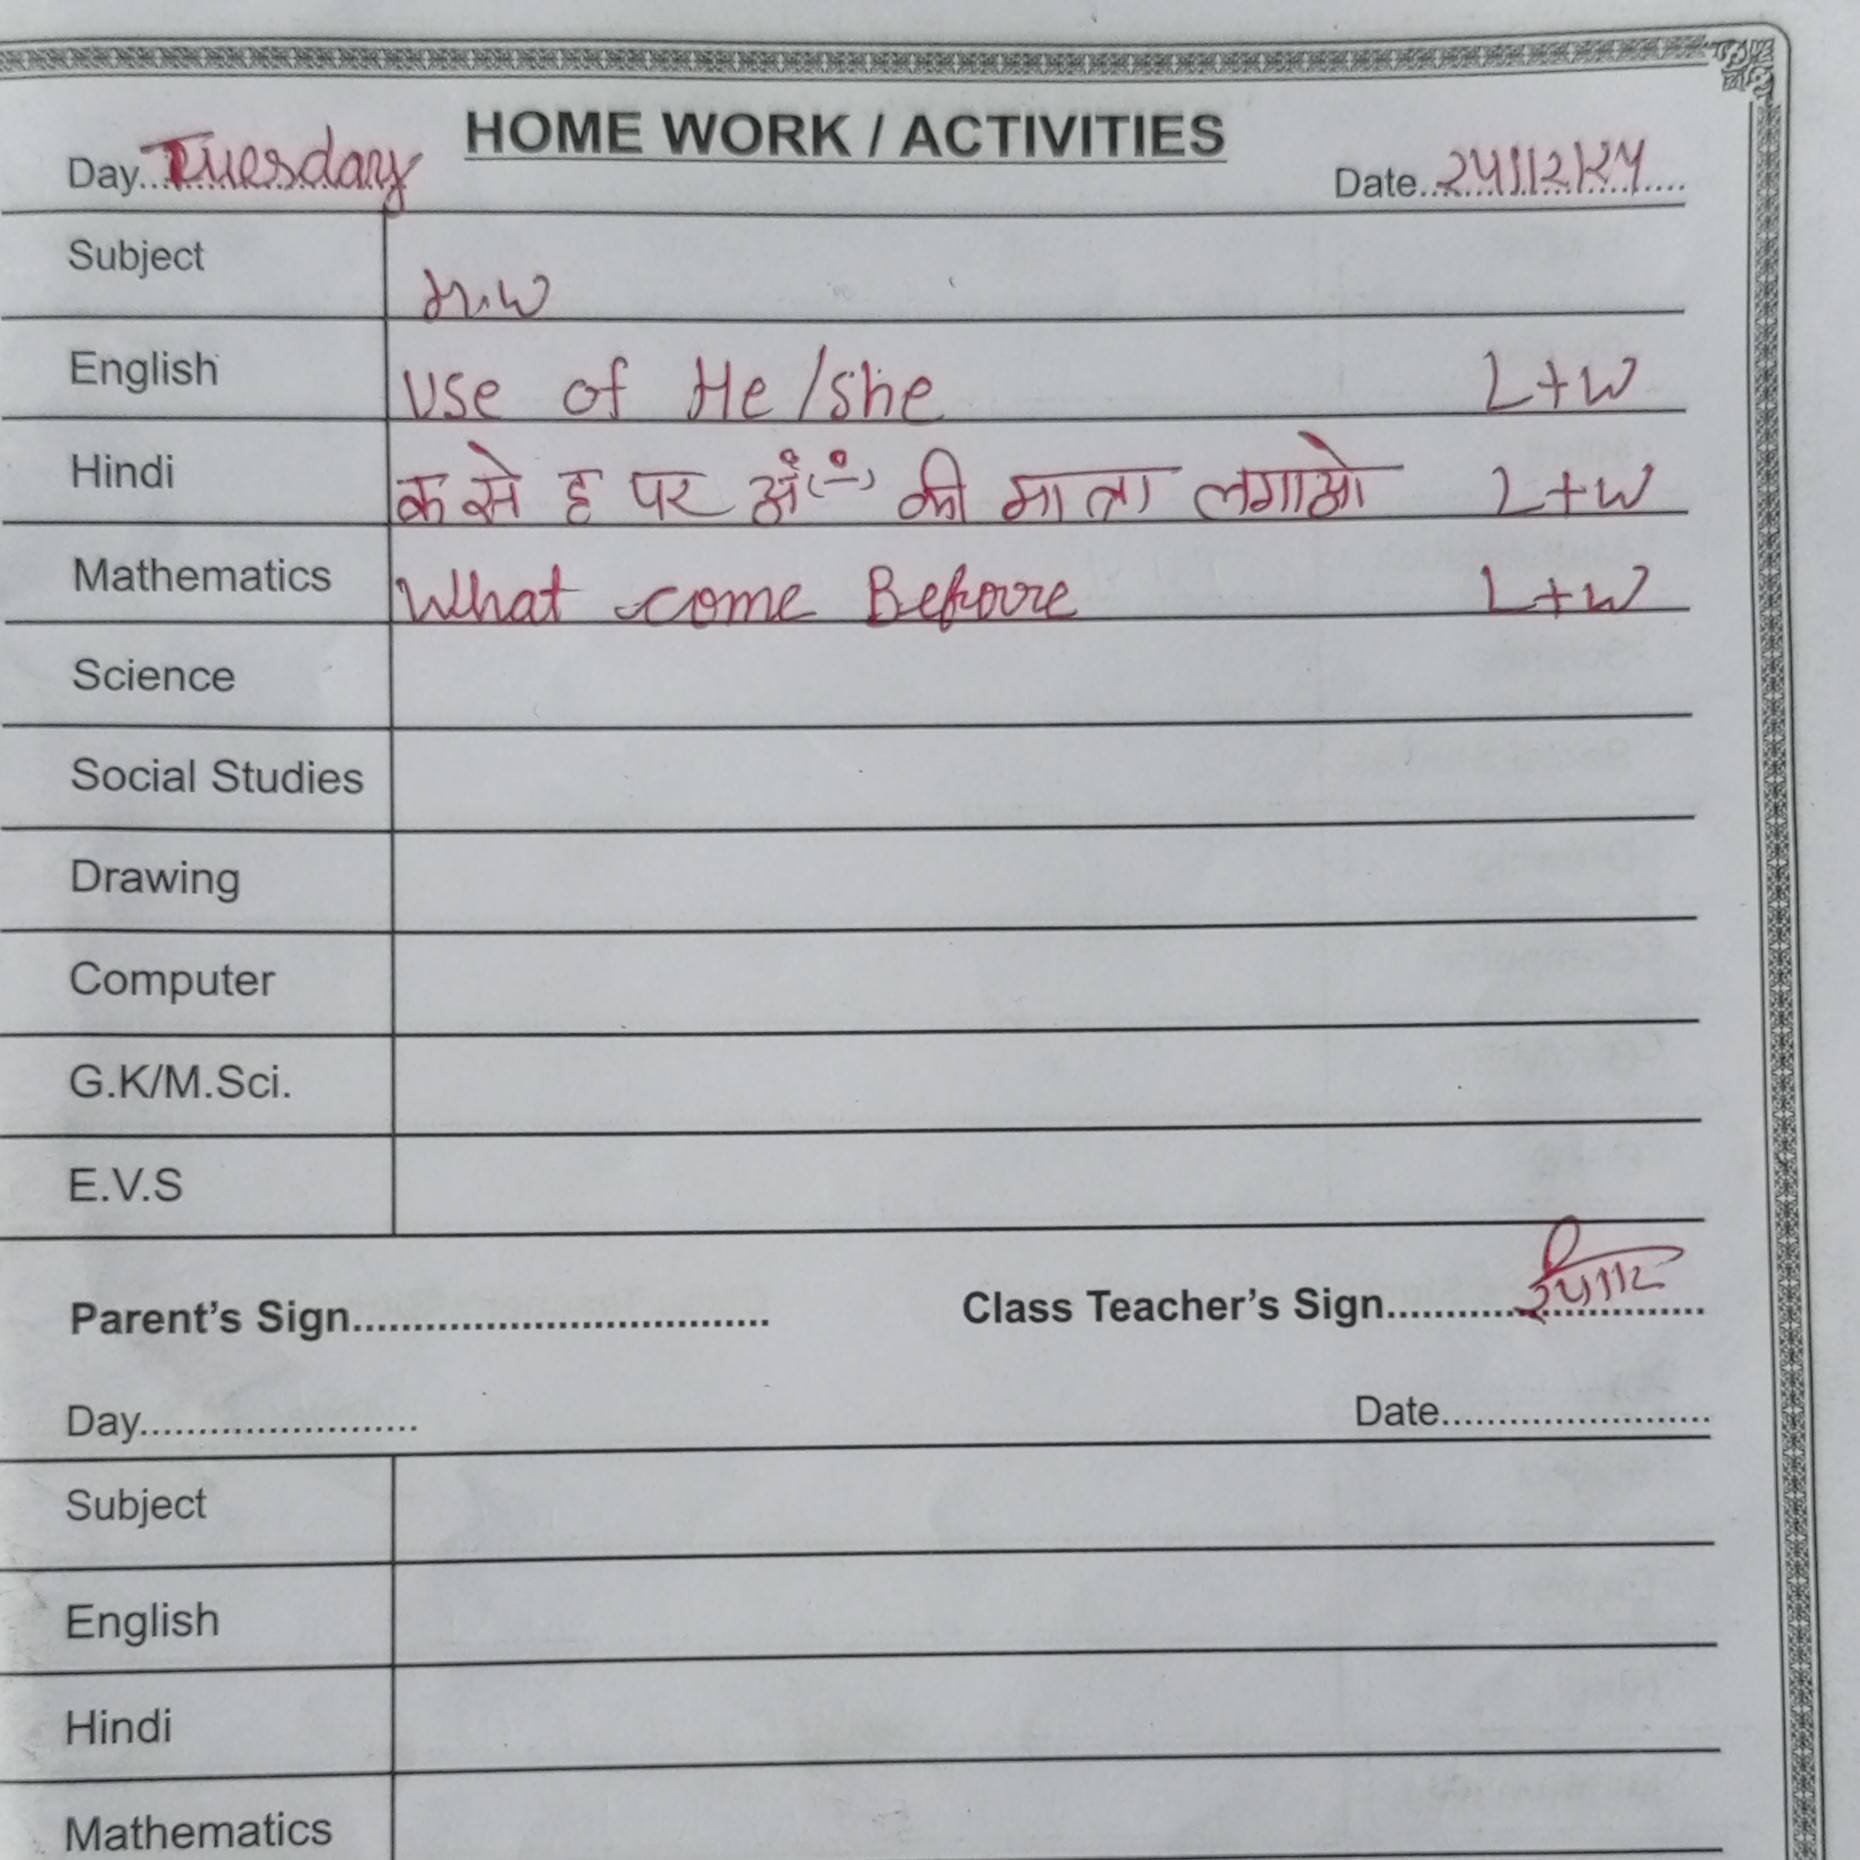 HOME WORK / ACTIVITIES
Day..Tuesday Date..24/12/24
Subject H.W
English Use of He/she L+W
Hindi क से ह पर अं(ं) की मात्रा लगाओ L+W
Mathematics What come Before L+W
Science
Social Studies
Drawing
Computer
G.K/M.Sci.
E.V.S
Parent's Sign................................... Class Teacher's Sign........... 24/12
Day........................ Date........................
Subject
English
Hindi
Mathematics